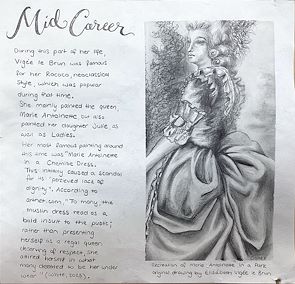 Mid Career
During this part of her life,
Vigée le Brun was famous
for her Rococo, neoclassical
style, which was popular
during that time.
She mainly painted the queen,
Marie Antoinette but also
painted her daughter Julie as
well as Ladies.
Her most famous painting around
this time was "Marie Antoinette
in a Chemise Dress.
This initially caused a scandal
for its "percieved lack of
dignity". According to
anther.com, "To many the
muslin dress read as a
bold insult to the public;
rather than presenting
herself as a regal queen
deserving of respect, she
attired herself in what
many deemed to be her under
wear" (White, 2023).
Recreation of Marie Antoinette in a Park
original drawing by Elisabeth Vigée le Brun